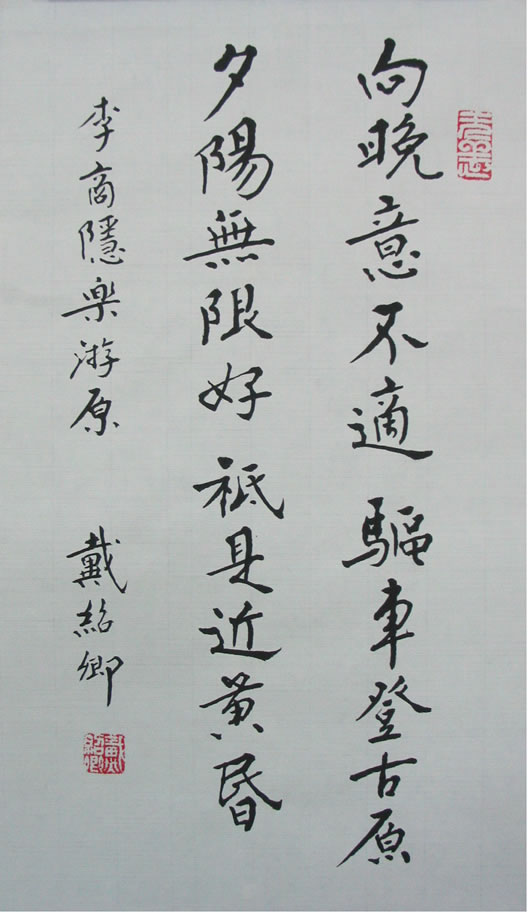 向晚意不適驅車登古原
夕陽無限好祗是近黄昏
李商隱樂游原 戴紹卿
戴紹卿